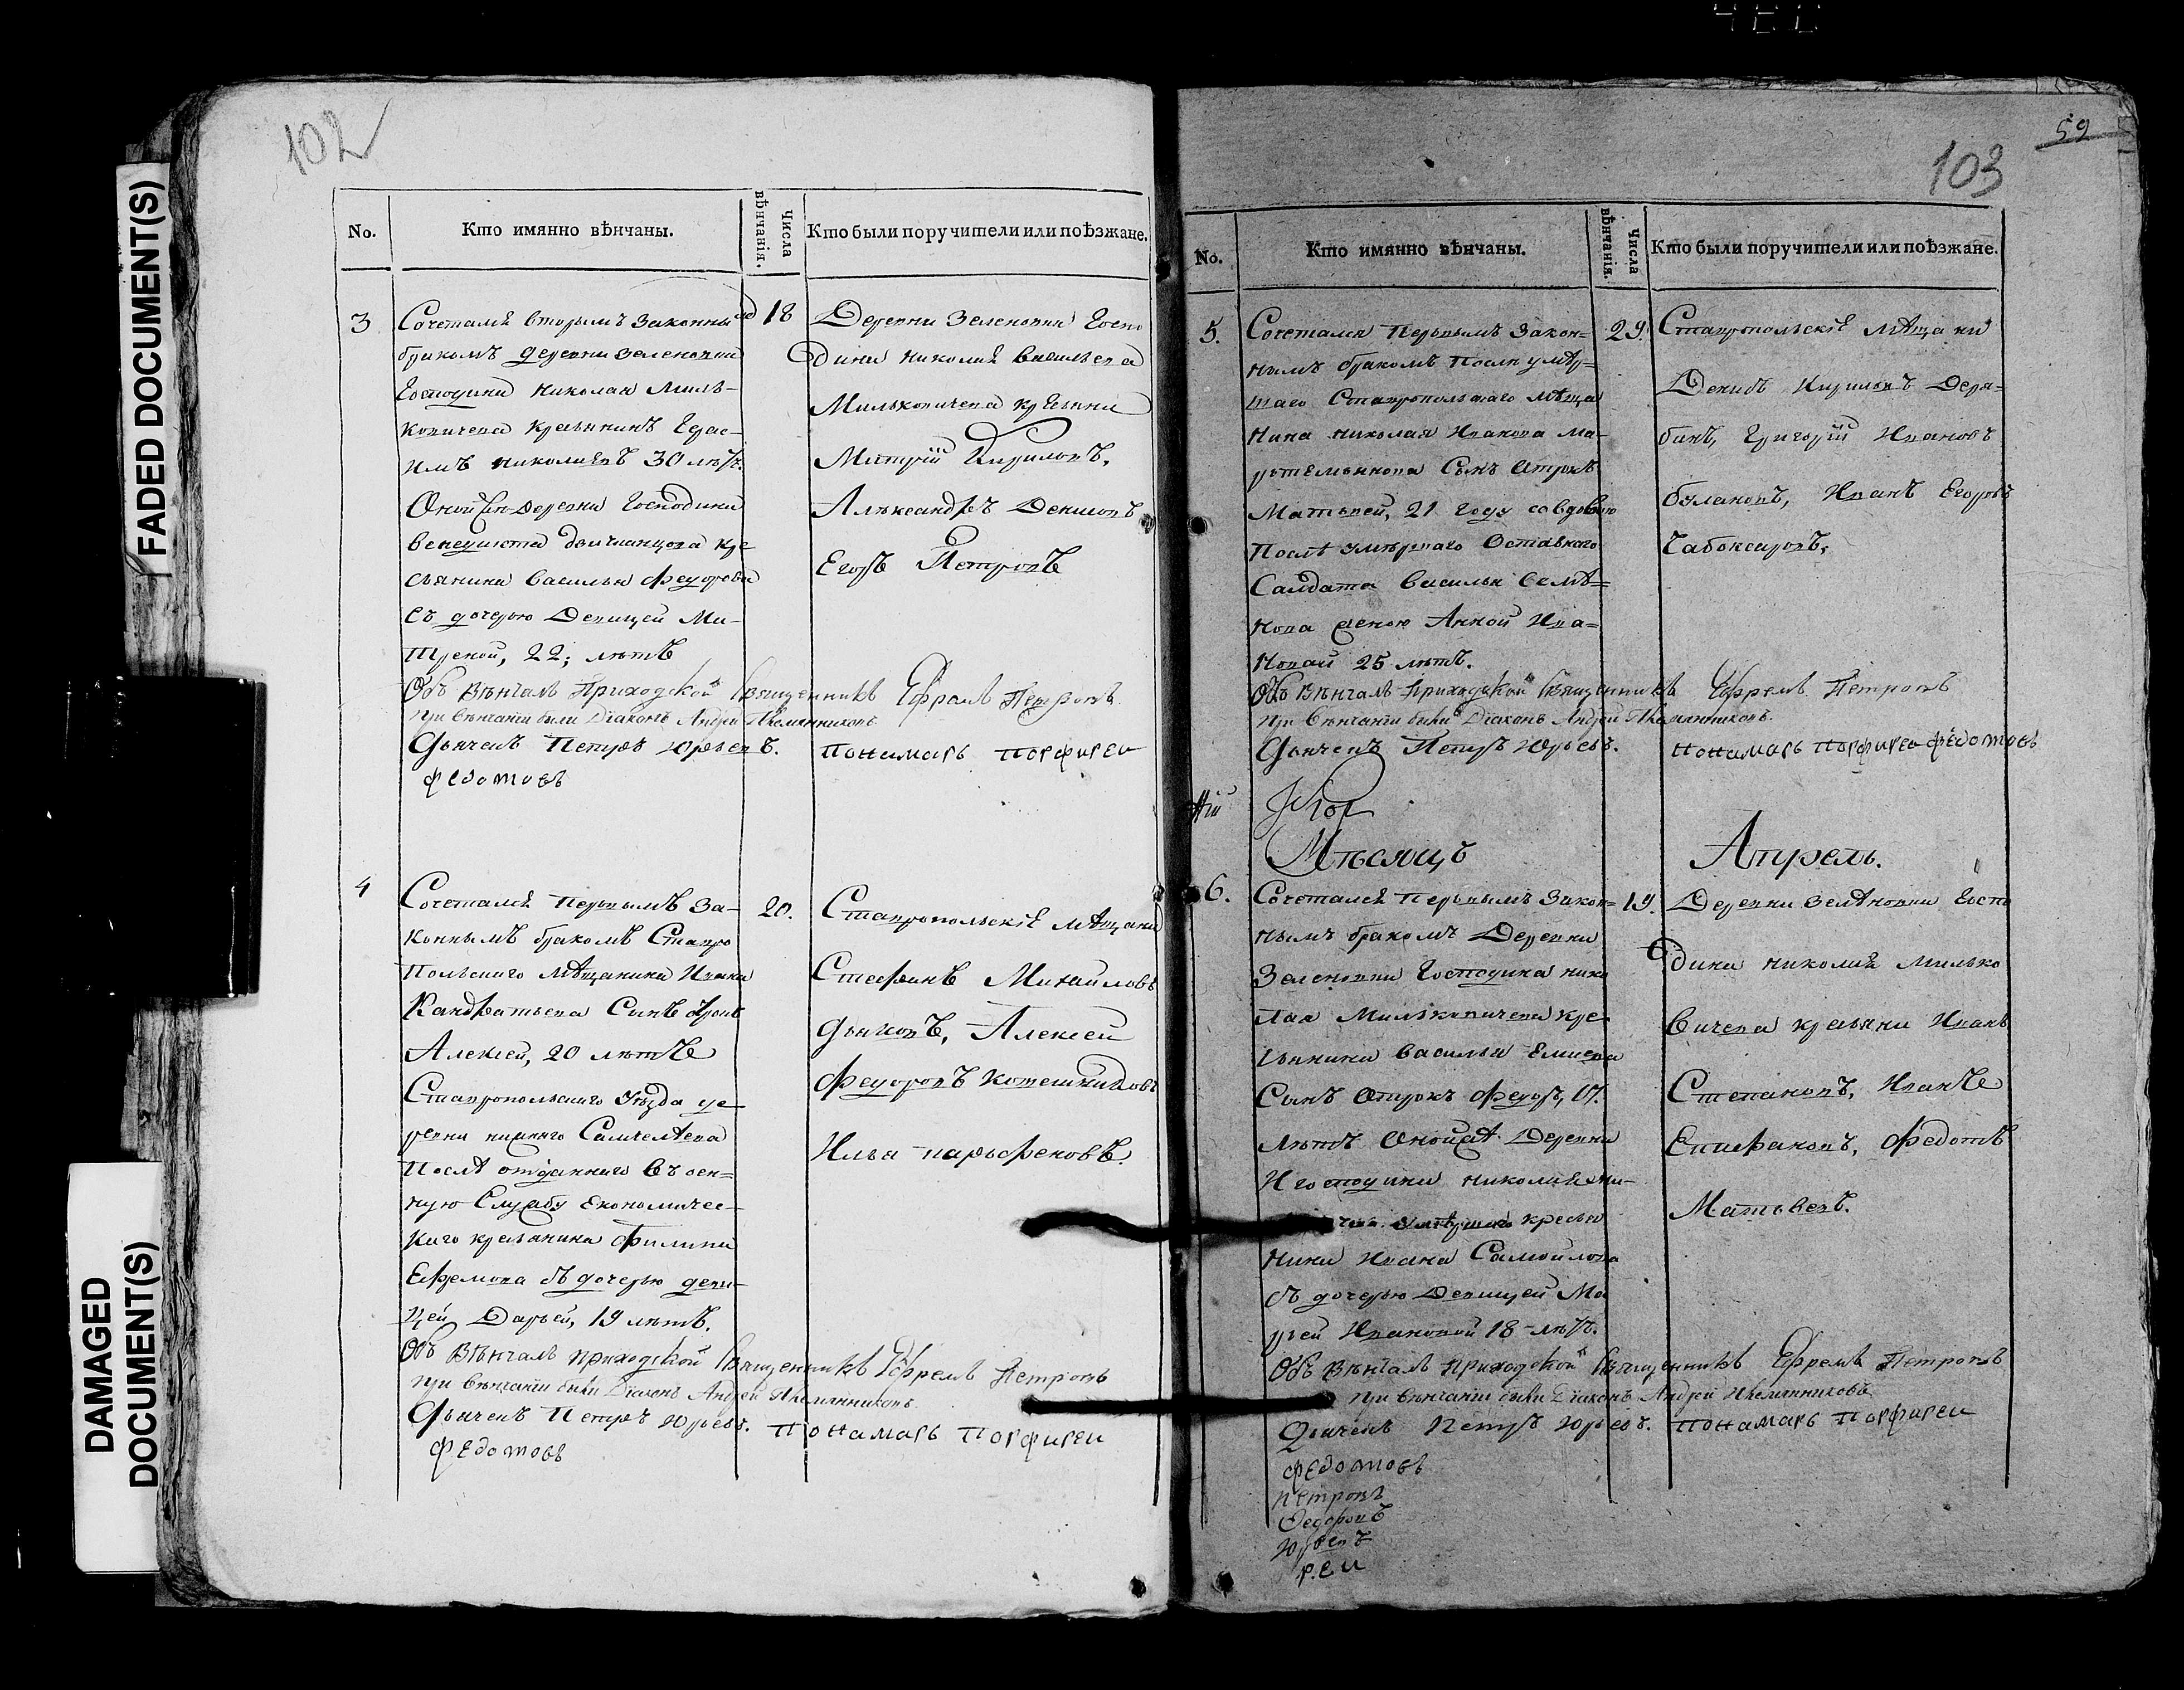 102
FADED DOCUMENT(S)
DAMAGED
DOCUMENT(S)
No.
Кто имянно вѣнчаны.
Числа
вѣнчанія.
Кто были поручители или поѣзжане.
3
Сочетался вторымъ законны
бракомъ деревни Зеленовки
Господина Николая Миль-
ковичева крестьянинъ
Николаевъ 30 лѣтъ.
Оной деревни Господина
Венедикта кре
стьянина Василья Федорова
съ дочерью девицей Ма-
треной, 22; лѣтъ
18
Деревни Зеленовки Госпо
дина Николая Васильева
Мильковичева крестьяни
Митрій Кириловъ,
Александръ Денисовъ
Егоръ Петровъ
Объ вѣнчалъ приходской священникъ Ефремъ Петровъ
при вѣнчаніи были Діаконъ Андрей Племянниковъ
Дьячекъ Петръ Юрьевъ. пономарь порфиреи
федотовъ
4
Сочетался первымъ за-
коннымъ бракомъ Ставро
польскаго мѣщанина Ивана
Кандратьева сынъ отрокъ
Алексей, 20 лѣтъ
Ставропольскаго уѣзда де
ревни нижняго Санчелѣева
послѣ отданнаго въ воен-
ную службу Економичес-
каго крестьянина Филипа
Ефремова съ дочерью деви-
цей Дарьей, 19 лѣтъ.
20.
Ставропольскіе мѣщани
Стефанъ Михайловъ
Дьяковъ, Алексей
Федоровъ Котельниковъ
Илья парьфеновъ.
Объ вѣнчалъ приходской священникъ Ефремъ Петровъ
при вѣнчаніи были Діаконъ Андрей Племянниковъ
Дьячекъ Петръ Юрьевъ. пономарь порфиреи
федотовъ
59
103
No.
Кто имянно вѣнчаны.
Числа
вѣнчанія.
Кто были поручители или поѣзжане.
5.
Сочетался первымъ закон=
нымъ бракомъ после умер=
шаго Ставропольскаго мѣща
нина Николая Иванова
сынъ отрокъ
Матьвей, 21 году со вдовою
послѣ умершаго оставного
салдата Василья Семѣ=
нова женою Анной Ива=
новой 25 лѣтъ.
29.
Ставропольскіе мѣщани
Денисъ Кириловъ Деря-
бинъ, Григорій Ивановъ
булановъ, Иванъ Егоровъ
Чабоксаровъ,
Объ вѣнчалъ приходской священникъ Ефремъ Петровъ
при вѣнчаніи были Діаконъ Андрей Племянниковъ.
Дьячекъ Петръ Юрьевъ. пономарь порфиреи федотовъ
Мѣсяцъ Апрель.
6.
Сочетался первымъ закон=
нымъ бракомъ Деревни
Зеленовки Господина Нико
лая Мильковичева кре
стьянина Василья
сынъ отрокъ Федоръ, 17.
лѣтъ оной же деревни
и господина Николая ми-
умершаго крестья
нина Ивана Самойлова
съ дочерью девицей Ма
рьей Ивановой 18-лѣтъ.
19.
Деревни Зелѣновки Госпо
дина Николая Милько
вичева крестьяни Иванъ
Степановъ, Иванъ
Епифановъ, Федотъ
Матьвевъ.
Объ вѣнчалъ приходской священникъ Ефремъ Петровъ
при вѣнчаніи были Діаконъ Андрей Племянниковъ
Дьячекъ Петръ Юрьевъ. пономарь порфиреи
федотовъ
петровъ
Федоровъ
Юрьевъ
реи